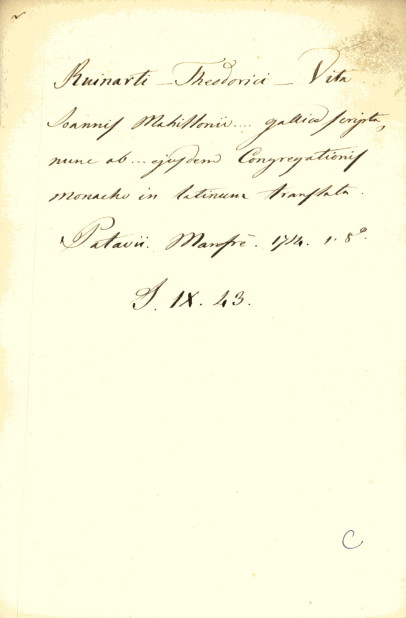 Ruinarti – Theodorici – Vita
Joannis Mabillonii .... gallice scripta,
nunc ab ... ejusdem Congregationis
monacho in latinum translata.
Patavii. Manfrè. 1714. 1. 8°.
S. IX. 43.
C